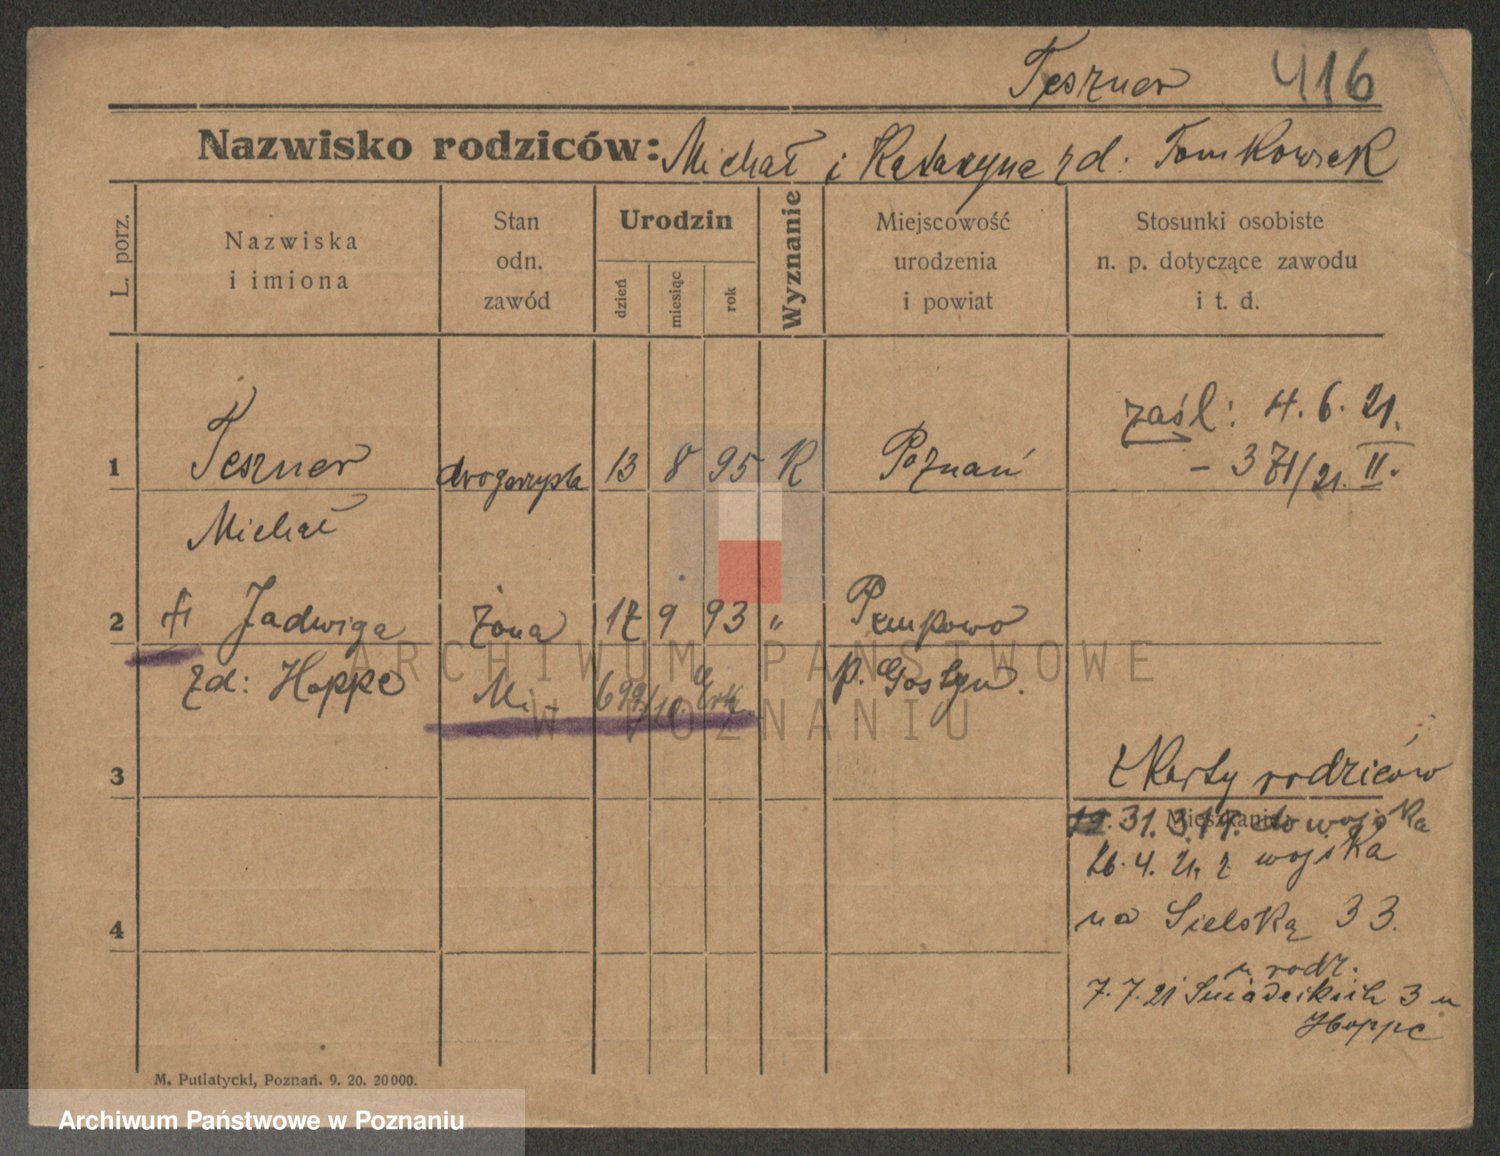 Teszner 416
Nazwisko rodziców: Michał i Katarzyna zd: Tomkowiak
L. porz.
Nazwiska
i imiona
Stan
odn.
zawód
Urodzin
dzień
miesiąc
rok
Wyznanie
Miejscowość
urodzenia
i powiat
Stosunki osobiste
n. p. dotyczące zawodu
i t. d.
zaśl: 4. 6. 21.
- 371/21. II.
1 Teszner drogerzysta 13 8 95 K Poznań
Michał
2 Jadwiga żona 12 9 93 " Pempowo
zd: Hoppe p. Gostyn.
3
z Karty rodziców
Mieszkanie
19. 31. 3. 19. do wojska
26. 4. 21. z wojska
4
na Sielską 33.
u rodz.
7. 7. 21 Śniadeckich 3 u
Hoppe
M. Putiatycki, Poznań. 9. 20. 20000.
ARCHIWUM PAŃSTWOWE
W POZNANIU
Archiwum Państwowe w Poznaniu